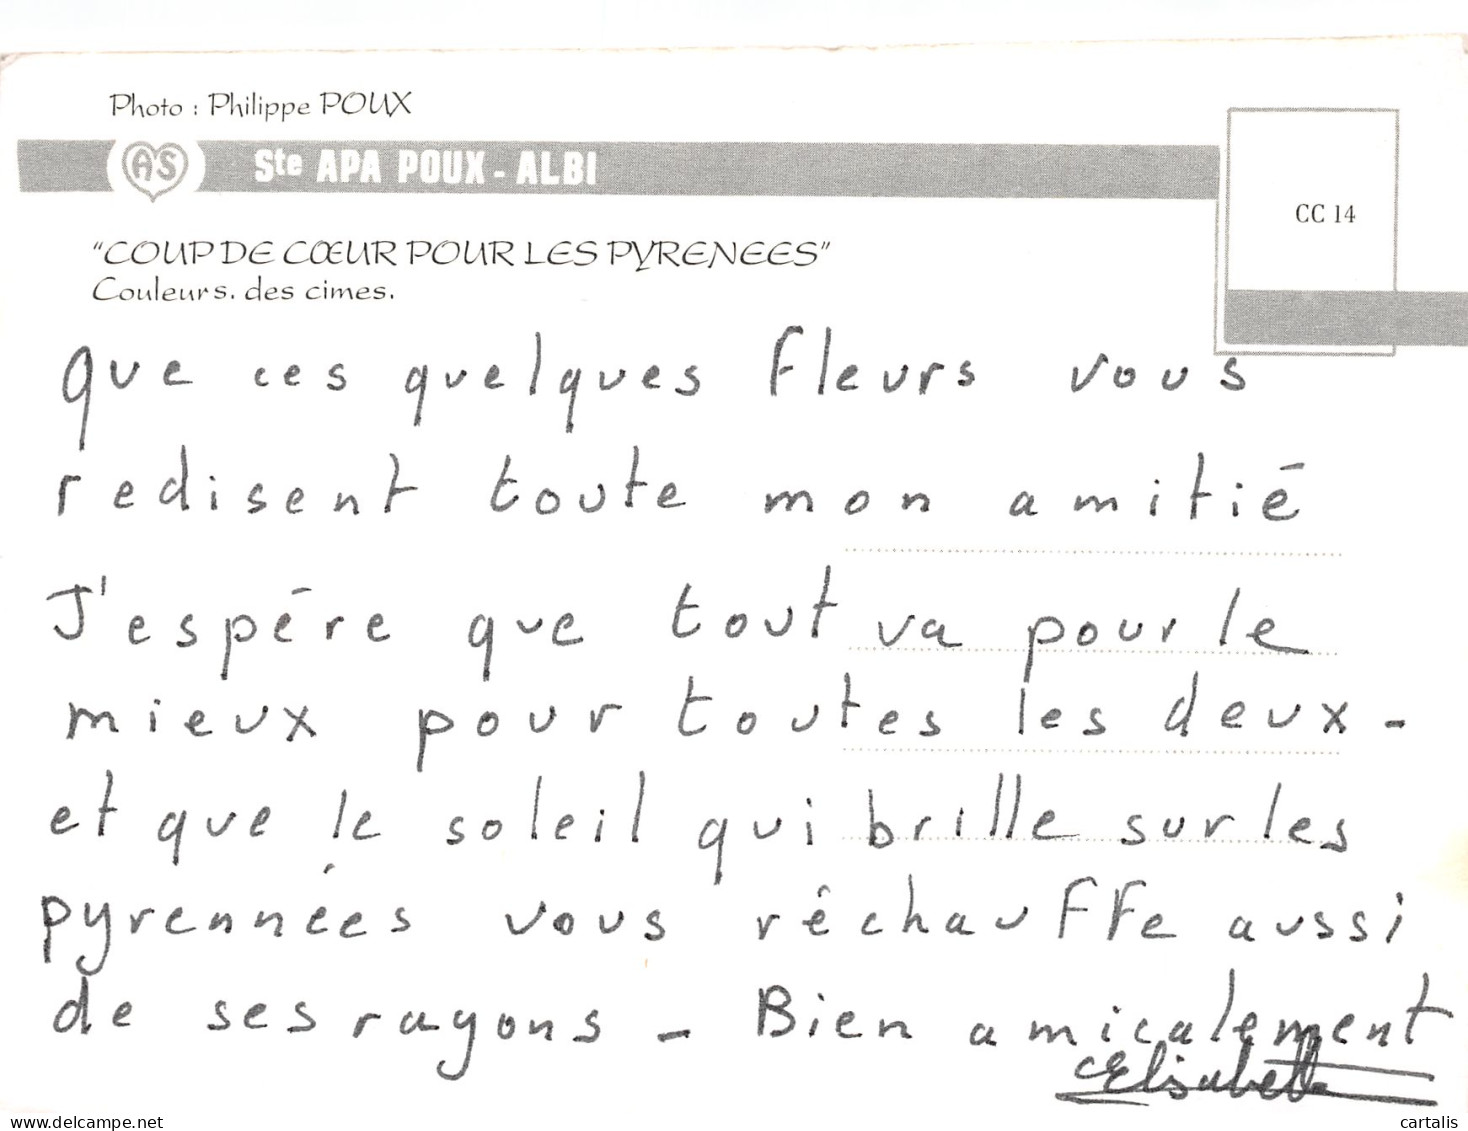 Photo : Philippe POUX
AS
Ste APA POUX - ALBI
CC 14
"COUP DE CŒUR POUR LES PYRENEES"
Couleurs. des cimes.
Que ces quelques fleurs vous
redisent toute mon amitié
J'espère que tout va pour le
mieux pour toutes les deux -
et que le soleil qui brille sur les
pyrennées vous réchauffe aussi
de ses rayons - Bien amicalement
Elisabeth
www.cartalis.com
cartalis